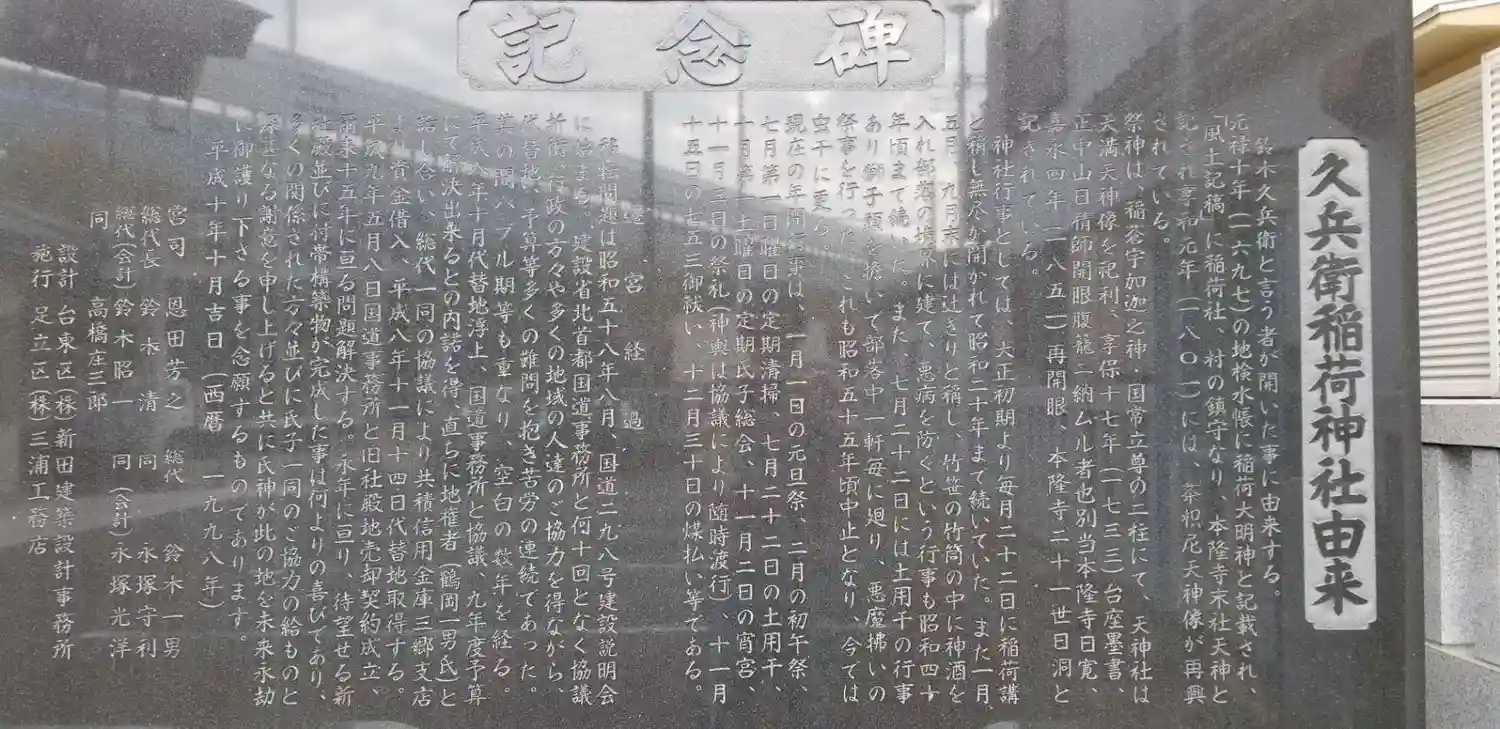 記念碑
久兵衛稲荷神社由来
鈴木久兵衛と言う者が開いた事に由来する。
元禄十年(一六九七)の地検水帳に稲荷大明神と記載され、
「風土記稿」に稲荷社、村の鎮守なり、本隆寺末社天神と
記され享和元年(一八〇一)には、荼枳尼天神像が再興
されている。
祭神は、稲蒼宇加迦之神・国常立尊の二柱にて、天神社は
天満天神像を祀利、享保十七年(一七三二)台座墨書、
正中山日精師開眼腹籠ニ納ムル者也別当本隆寺日寛、
嘉永四年(一八五一)再開眼、本隆寺二十一世日洞と
記されている。
神社行事としては、大正初期より毎月二十二日に稲荷講
と稱し無尽が開かれて昭和二十年まで続いていた。また一月、
五月、九月末には辻きりと稱し、竹笹の竹筒の中に神酒を
入れ部落の境界に建て、悪病を防ぐという行事も昭和四十
年頃まで続いた。また、七月二十二日には土用干の行事
あり獅子頭を擔いで部落中一軒毎に廻り、悪魔拂いの
祭事を行った。これも昭和五十五年頃中止となり、今では
虫干に更る。
現在の年間行事は、一月一日の元旦祭、二月の初午祭、
七月第一日曜日の定期清掃、七月二十二日の土用干、
十月第一土曜日の定期氏子総会、十一月二日の宵宮、
十一月三日の祭礼(神輿は協議により随時渡行)、十一月
十五日の七五三御祓い、十二月三十日の煤払い等である。
遷宮経過
移転問題は昭和五十八年八月、国道二九八号建設説明会
に始まる。建設省北首都国道事務所と何十回となく協議
折衝、行政の方々や多くの地域の人達のご協力を得ながら、
代替地、予算等多くの難問を抱き苦労の連続であった。
其の間バブル期等も重なり、空白の数年を経る。
平成八年十月代替地浮上、国道事務所と協議、九年度予算
にて解決出来るとの内諾を得、直ちに地権者(鶴岡一男氏)と
話し合い、総代一同の協議により共積信用金庫三郷支店
より資金借入、平成八年十一月十四日代替地取得する。
平成九年五月八日国道事務所と旧社殿地売却契約成立、
爾来十五年に亘る問題解決する。永年に亘り、待望せる新
社殿並びに付帯構築物が完成した事は何よりの喜びであり、
多くの関係された方々並びに氏子一同のご協力の給ものと
深甚なる謝意を申し上げると共に氏神が此の地を未来永劫
に御護り下さる事を念願するものであります。
平成十年十月吉日 (西暦 一九九八年)
宮司 恩田芳之 総代 鈴木一男
総代長 鈴木清 同 永塚守利
総代(会計)鈴木昭一 同(会計)永塚光洋
同 高橋庄三郎
設計 台東区(株)新田建築設計事務所
施行 足立区(株)三浦工務店